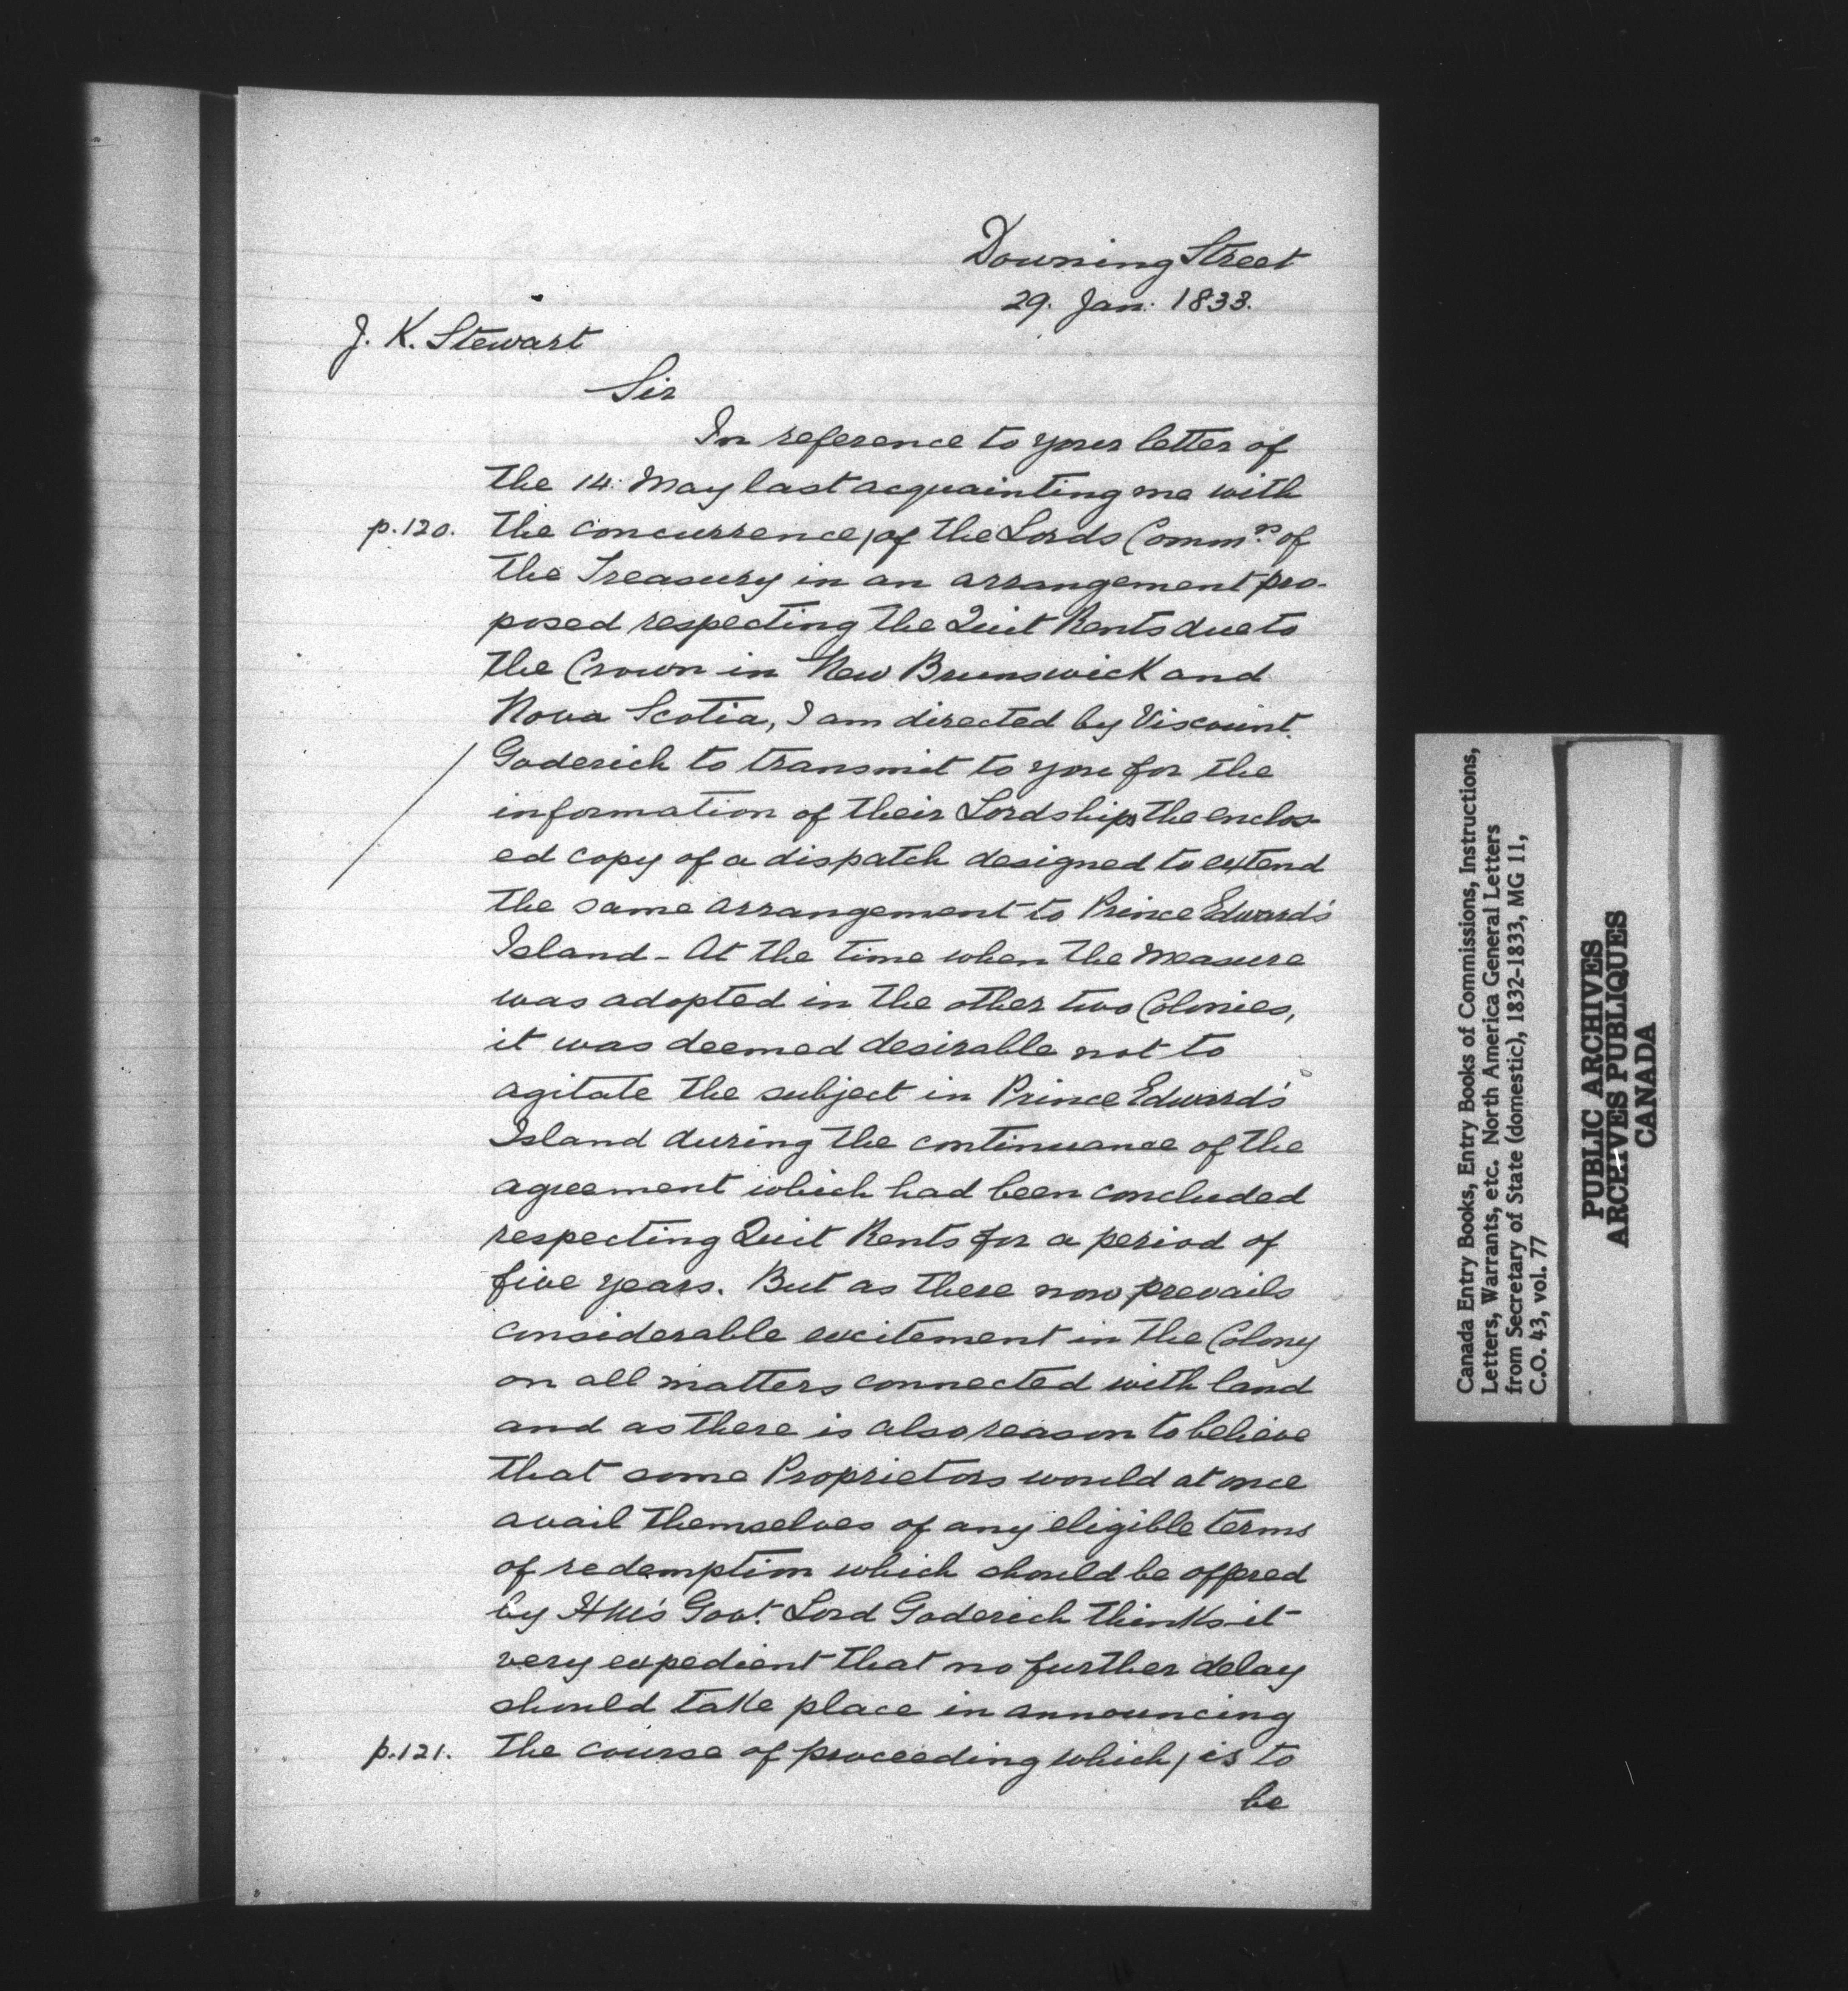 Downing Street
29. Jan: 1833.
J. K. Stewart
Sir
In reference to your letter of
the 14: May last acquainting me with
p.120. the concurrence, of the Lords Commrs. of
the Treasury in an arrangement pro-
posed respecting the Quit Rents due to
the Crown in New Brunswick and
Nova Scotia, I am directed by Viscount.
Goderich to transmit to you for the
information of their Lordships the enclos-
ed copy of a dispatch designed to extend
the same arrangement to Prince Edward's
Island - At the time when the measure
was adopted in the other two Colonies,
it was deemed desirable not to
agitate the subject in Prince Edward's
Island during the continuance of the
agreement which had been concluded
respecting Quit Rents for a period of
five years. But as there now prevails
considerable excitement in the Colony
on all matters connected with land
and as there is also reason to believe
that some Proprietors would at once
avail themselves of any eligible terms
of redemption which should be offered
by HM's Govt. Lord Goderich thinks it
very expedient that no further delay
should take place in announcing
p.121. the course of proceeding which, is to
be
Canada Entry Books, Entry Books of Commissions, Instructions,
Letters, Warrants, etc. North America General Letters
from Secretary of State (domestic), 1832-1833, MG 11,
C.O. 43, vol. 77
PUBLIC ARCHIVES
ARCHIVES PUBLIQUES
CANADA